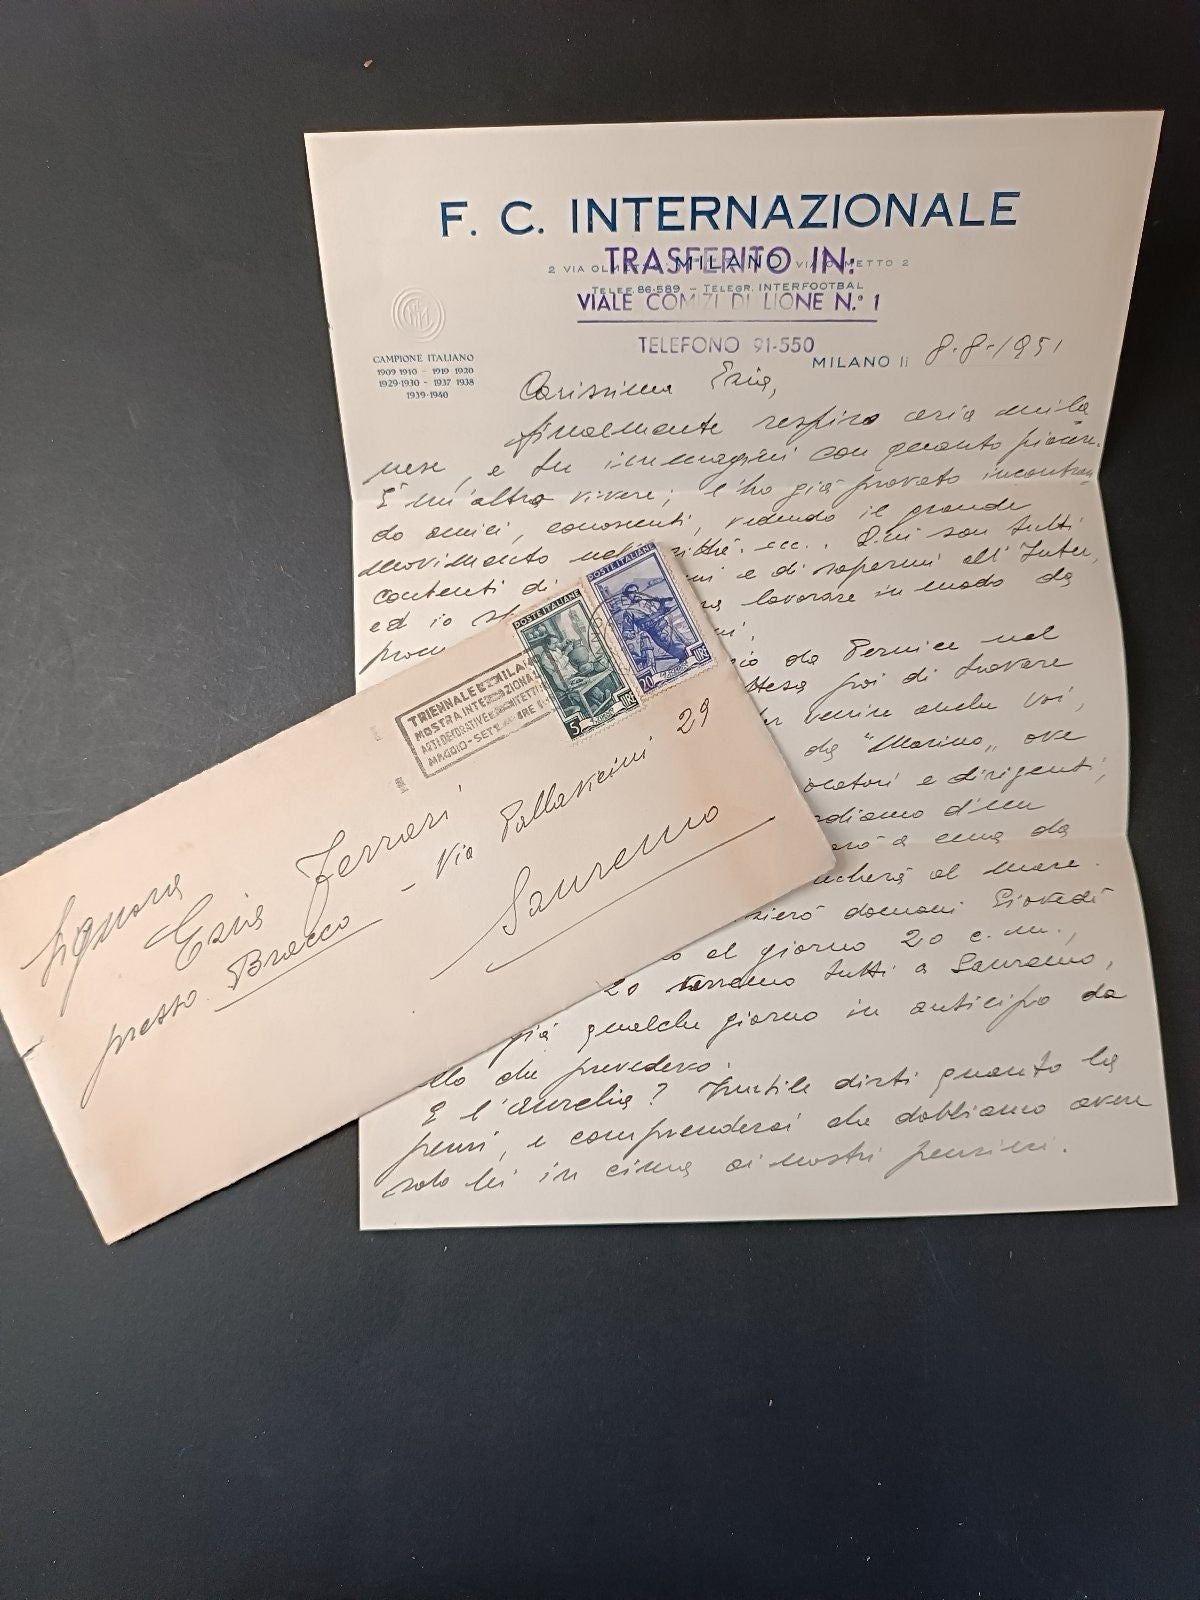 F. C. INTERNAZIONALE
MILANO
2 VIA OLMETTO VIA OLMETTO 2
TELEF. 86-589 - TELEGR. INTERFOOTBAL
TRASFERITO IN:
VIALE COMIZI DI LIONE N.° 1
TELEFONO 91-550
CAMPIONE ITALIANO
1909-1910 - 1919-1920
1929-1930 - 1937-1938
1939-1940
MILANO li 8-8-1951
Carissima Ezia,
finalmente respiro aria mila
nese, e tu immagini con quanto piacere.
E' un'altro vivere; l'ho già provato incontran
do amici, conoscenti, vedendo il grande
movimento città ecc.. Qui son tutti
contenti di e di sapermi all'Inter,
ed io lavorare in modo da
da Pernice nel
poi di trovare
venire anche voi,
da "Marino" ove
e dirigenti,
d'un
a cena da
al mare.
domani Giovedì
al giorno 20 c.m.,
20 verremo tutti a Sanremo,
già qualche giorno in anticipo da
che prevedevo.
E l'Aurelia? Inutile dirti quanto la
pensi, e comprenderai che dobbiamo avere
solo lei in cima ai nostri pensieri.
POSTE ITALIANE
5 LIRE
POSTE ITALIANE
20 LIRE
TRIENNALE DI MILANO
MOSTRA INTERNAZIONALE
ARTI DECORATIVE ARCHITETT
MAGGIO - SETTEMBRE
Signora
Ezia Ferrari
presso Bracco - Via Pallavicini 29
Sanremo